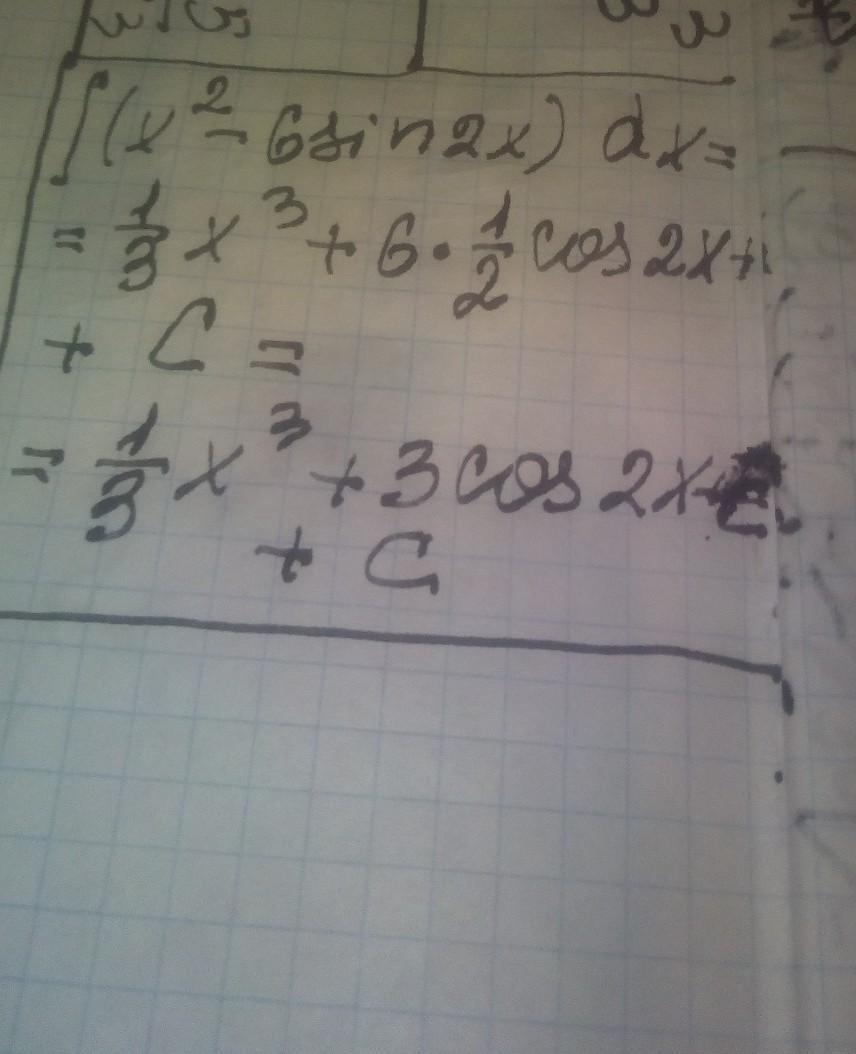 ∫(x² - 6sin2x) dx =
= 1/3 x³ + 6 · 1/2 cos2x +
+ C =
= 1/3 x³ + 3cos2x +
+ C